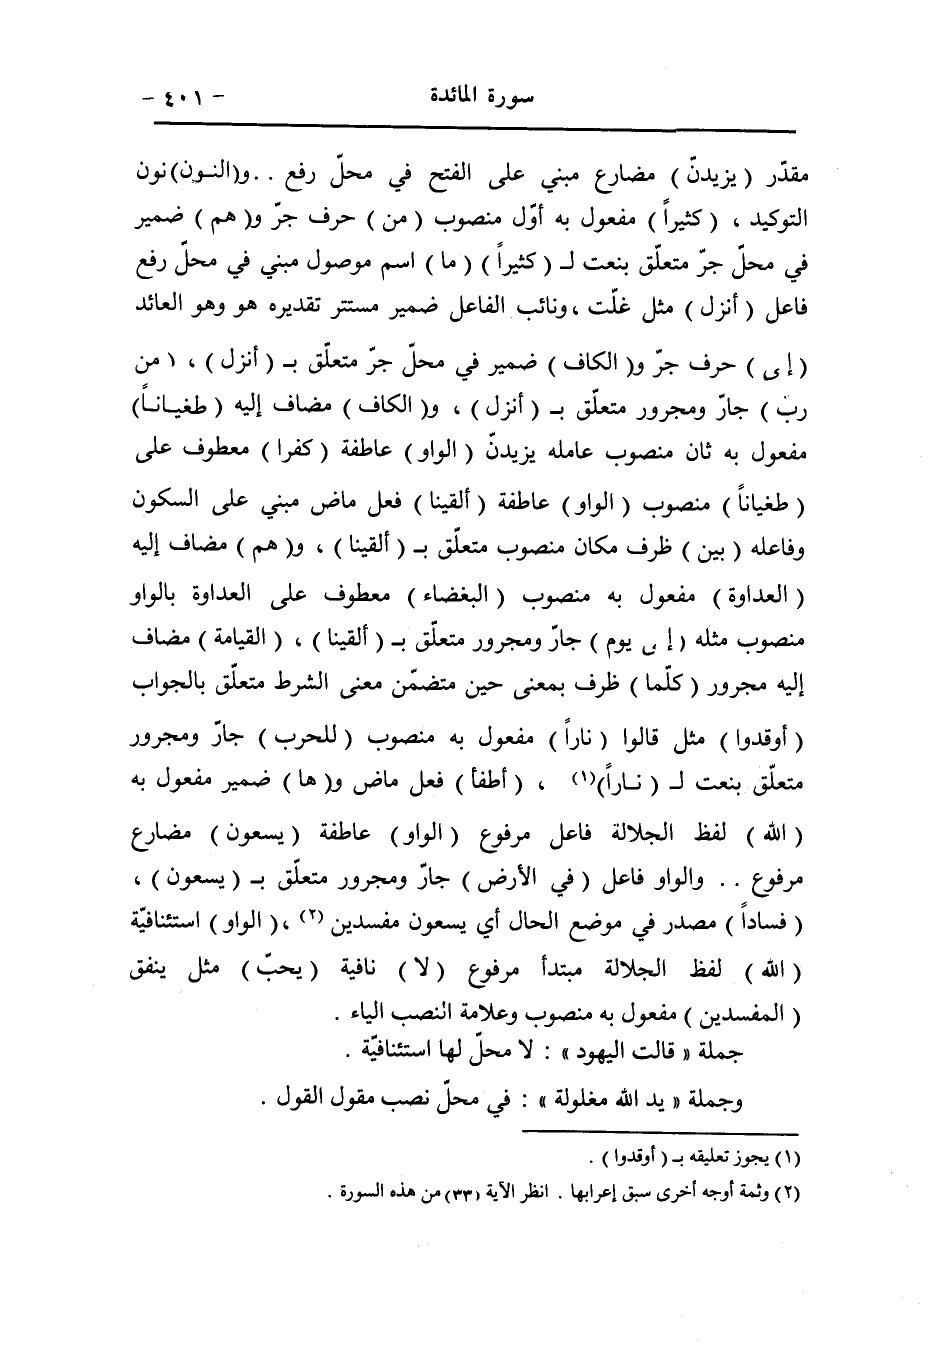 سورة المائدة - ٤٠١ -
مقدّر ( يزيدنّ ) مضارع مبني على الفتح في محلّ رفع . . و( النون ) نون
التوكيد ، ( كثيراً ) مفعول به أوّل منصوب ( من ) حرف جرّ و( هم ) ضمير
في محلّ جرّ متعلّق بنعت لـ ( كثيراً ) ( ما ) اسم موصول مبني في محلّ رفع
فاعل ( أنزل ) مثل غلّت ، ونائب الفاعل ضمير مستتر تقديره هو وهو العائد
( إلى ) حرف جرّ و( الكاف ) ضمير في محلّ جرّ متعلّق بـ ( أنزل ) ، ( من
ربّ ) جارّ ومجرور متعلّق بـ ( أنزل ) ، و( الكاف ) مضاف إليه ( طغيـانـاً )
مفعول به ثان منصوب عامله يزيدنّ ( الواو ) عاطفة ( كفرا ) معطوف على
( طغياناً ) منصوب ( الواو ) عاطفة ( ألقينا ) فعل ماض مبني على السكون
وفاعله ( بين ) ظرف مكان منصوب متعلّق بـ ( ألقينا ) ، و( هم ) مضاف إليه
( العداوة ) مفعول به منصوب ( البغضاء ) معطوف على العداوة بالواو
منصوب مثله ( إلى يوم ) جارّ ومجرور متعلّق بـ ( ألقينا ) ، ( القيامة ) مضاف
إليه مجرور ( كلّما ) ظرف بمعنى حين متضمّن معنى الشرط متعلّق بالجواب
( أوقدوا ) مثل قالوا ( ناراً ) مفعول به منصوب ( للحرب ) جارّ ومجرور
متعلّق بنعت لـ ( نـاراً )(١) ، ( أطفأ ) فعل ماض و( ها ) ضمير مفعول به
( الله ) لفظ الجلالة فاعل مرفوع ( الواو ) عاطفة ( يسعون ) مضارع
مرفوع . . والواو فاعل ( في الأرض ) جارّ ومجرور متعلّق بـ ( يسعون ) ،
( فساداً ) مصدر في موضع الحال أي يسعون مفسدين (٢) ، ( الواو ) استئنافيّة
( الله ) لفظ الجلالة مبتدأ مرفوع ( لا ) نافية ( يحبّ ) مثل ينفق
( المفسدين ) مفعول به منصوب وعلامة النصب الياء .
جملة « قالت اليهود » : لا محلّ لها استئنافيّة .
وجملة « يد الله مغلولة » : في محلّ نصب مقول القول .
(١) يجوز تعليقه بـ ( أوقدوا ) .
(٢) وثمة أوجه أخرى سبق إعرابها . انظر الآية (٣٣) من هذه السورة .